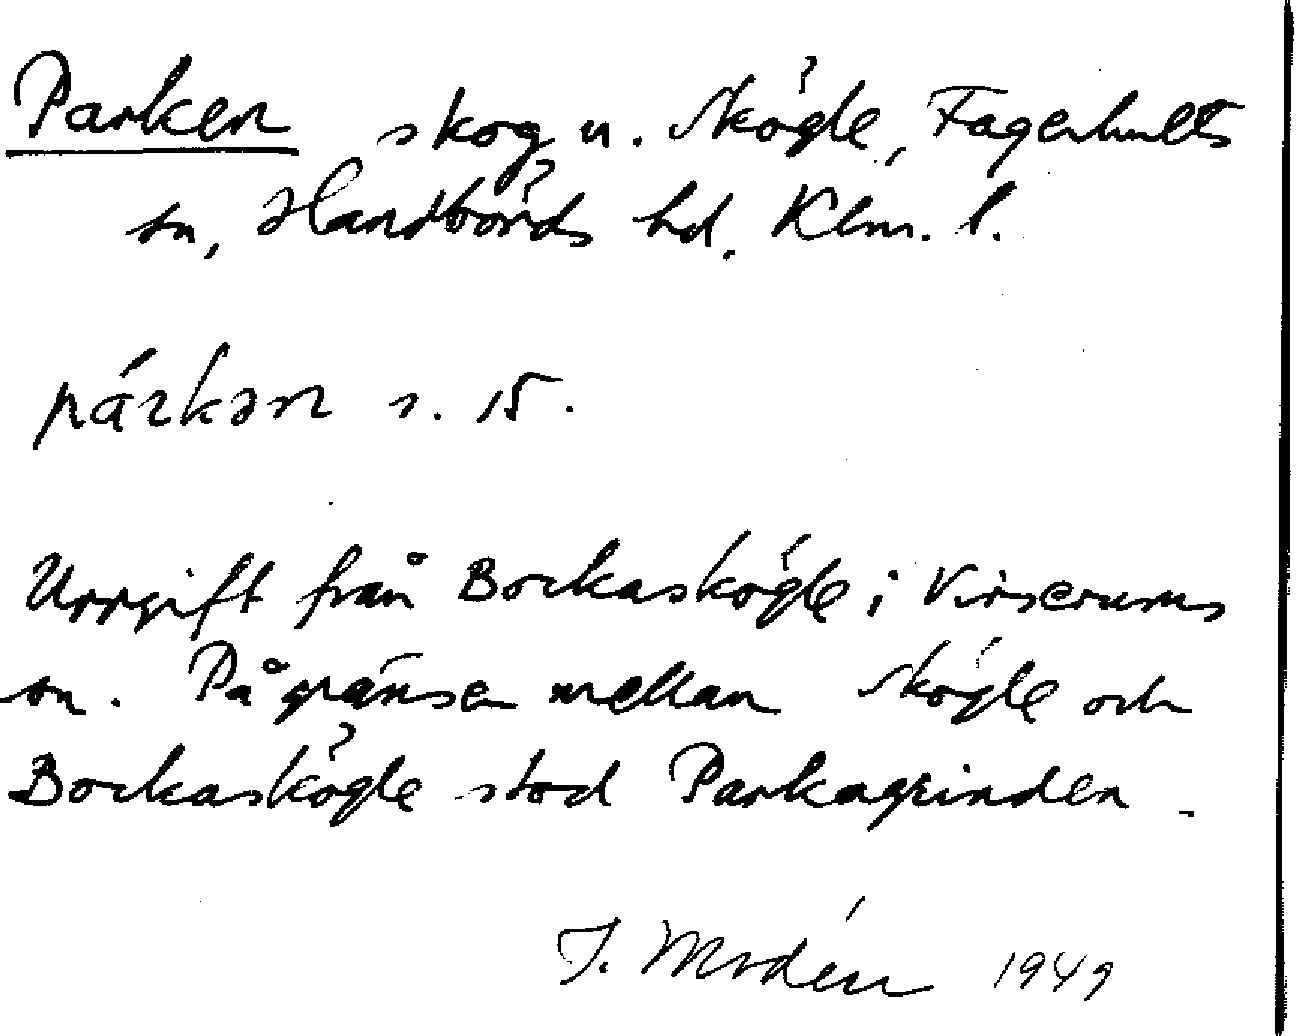 Parken skog u. Skögle, Fagerhults
sn, Handbörds hd. Klm. l.
párkən s. 15.
Uppgift från Bockaskögle i Virserums
sn. På gränsen mellan Skögle och
Bockaskögle stod Parkagrinden.
I. Modéer 1949